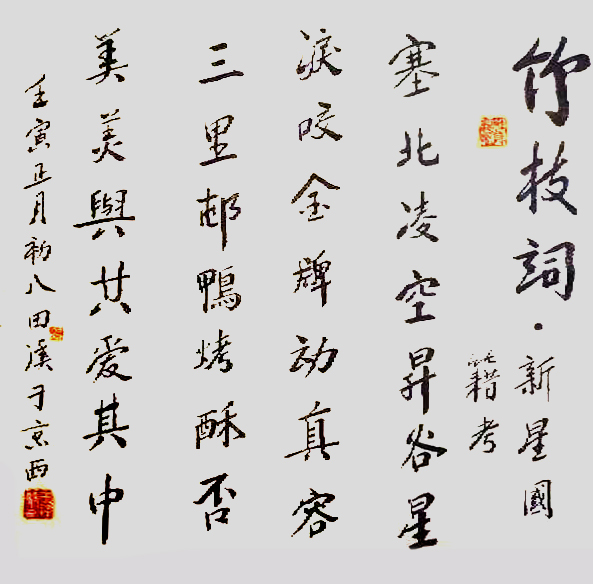 竹枝詞·新星國
籍考
塞北凌空昇谷星
淚咬金牌动真容
三里邨鴨烤酥否
美美與共愛其中
壬寅正月初八田溪于京西